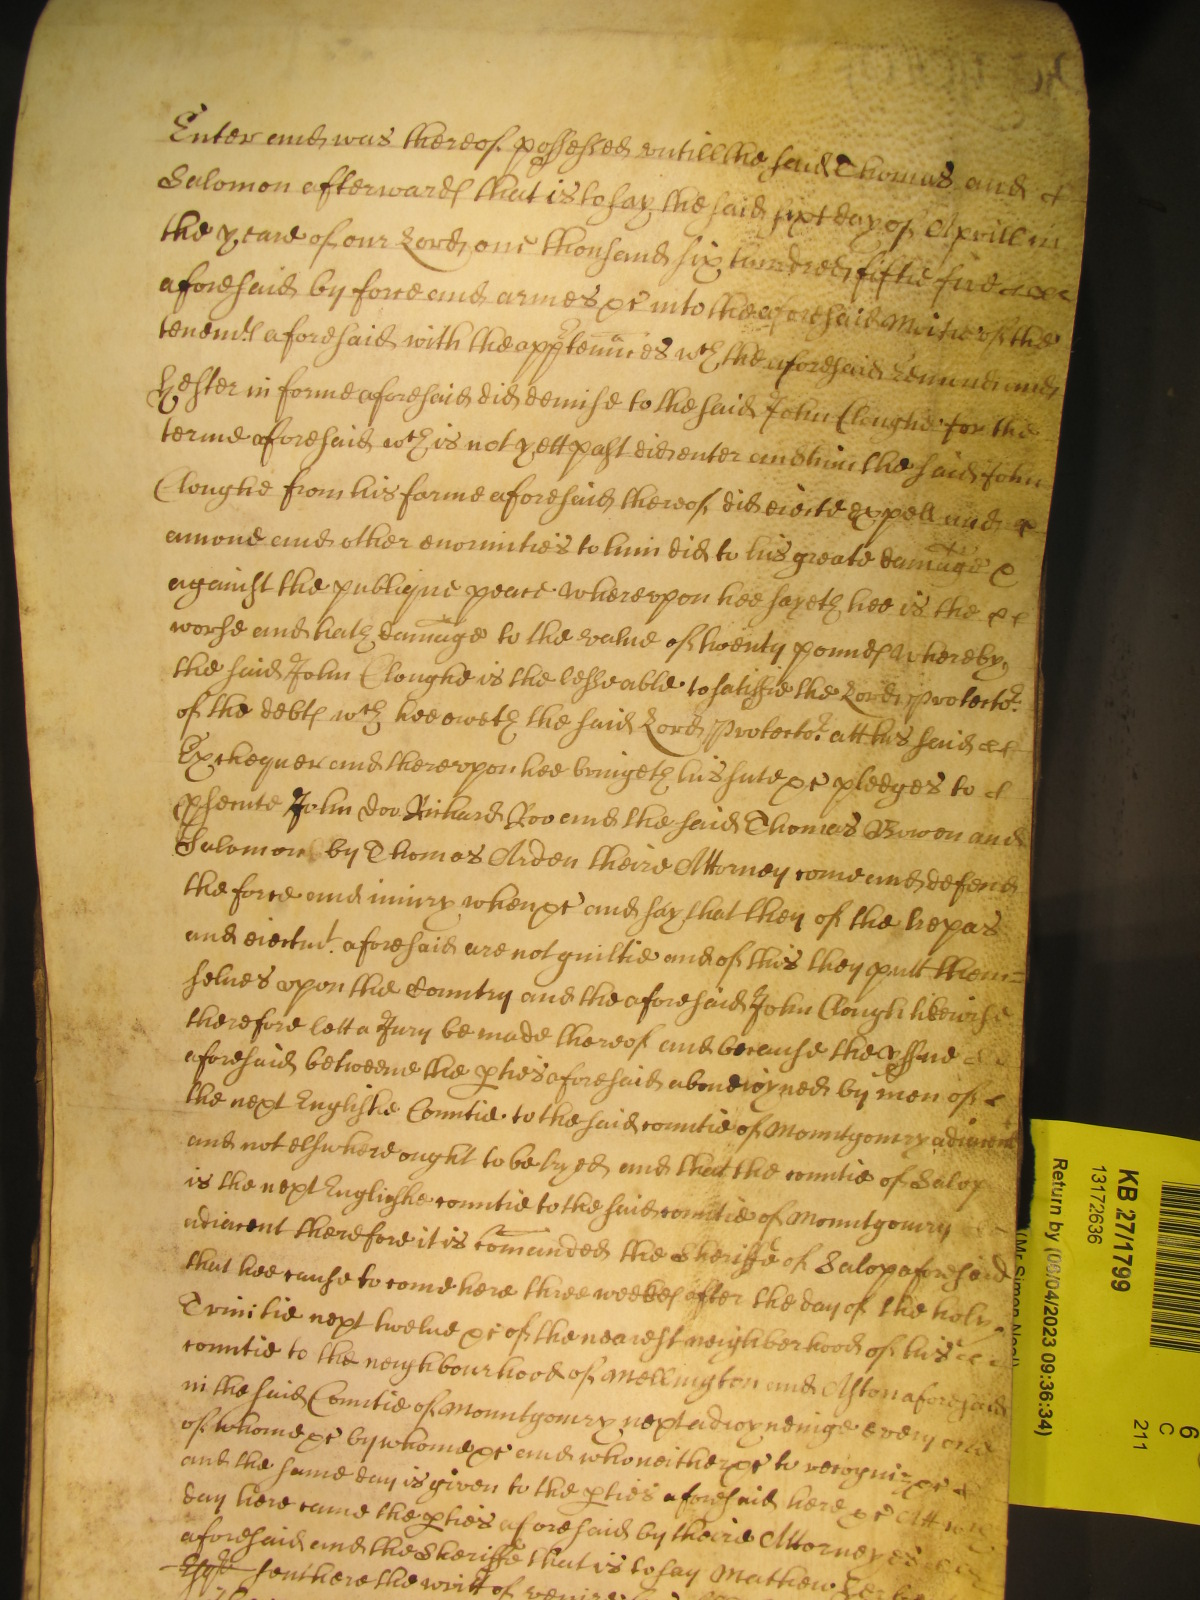 Enter and was thereof possessed vntill the said Thomas and
Salomon afterward that is to say the said sixt day of Aprill in
the yeare of our Lord one thousand six hundred fiftie five
aforesaid by force and armes &c into the aforesaid Moitie of the
tenemts aforesaid with the apptennces wch the aforesaid Edmund and
Hester in forme aforesaid did demise to the said John Cloughe for the
terme aforesaid wch is not yett past did enter and him the said John
Cloughe from his farme aforesaid thereof did eiecte expell and
amove and other enormities to him did to his greate damage &
against the publique peace Wherevpon hee sayeth hee is the
worse and hath damage to the value of twenty pounds Whereby
the said John Cloughe is the lesse able to satisfie the Lord Protector
of the debts wch hee oweth the said Lord Protector att his said
Exchequer and therevpon hee bringeth his sute &c pledges to
psecute John Doo Richard Roo and the said Thomas Bowen and
Salomon by Thomas Arden theire Attorney come and defend
the force and iniury when &c and say that they of the trepas
and eiectmt aforesaid are not guiltie and of this they putt them=
selues vpon the Country and the aforesaid John Clough likewise
therefore lett a Jury be made thereof and because the yssue
aforesaid betweene the pties aforesaid aboue ioyned by men of
the next Englishe Countie to the said countie of Mountgomry adiacent
and not elswhere ought to be tryed and that the countie of Salop
is the next Englishe countie to the said countie of Mountgomry
adiacent therefore it is comanded the Sheriffe of Salop aforesaid
that hee cause to come here three weekes after the day of the holy
Trinitie next twelue &c of the nearest neighberhood of his
countie to the neighbourhood of Mellington and Aston aforesaid
in the said Countie of Mountgomry next adioyneinge every one
of whome &c by whome &c and who neither &c to recogniz &c
and the same day is given to the pties aforesaid here &c Att
day here came the pties aforesaid by theire Attorneyes
aforesaid and the Sheriffe that is to say Mathew
sent here the writt of
KB 27/1799
13172636
Return by (06/04/2023 09:36:34)
(Mr Simon Neal)
6
C
211